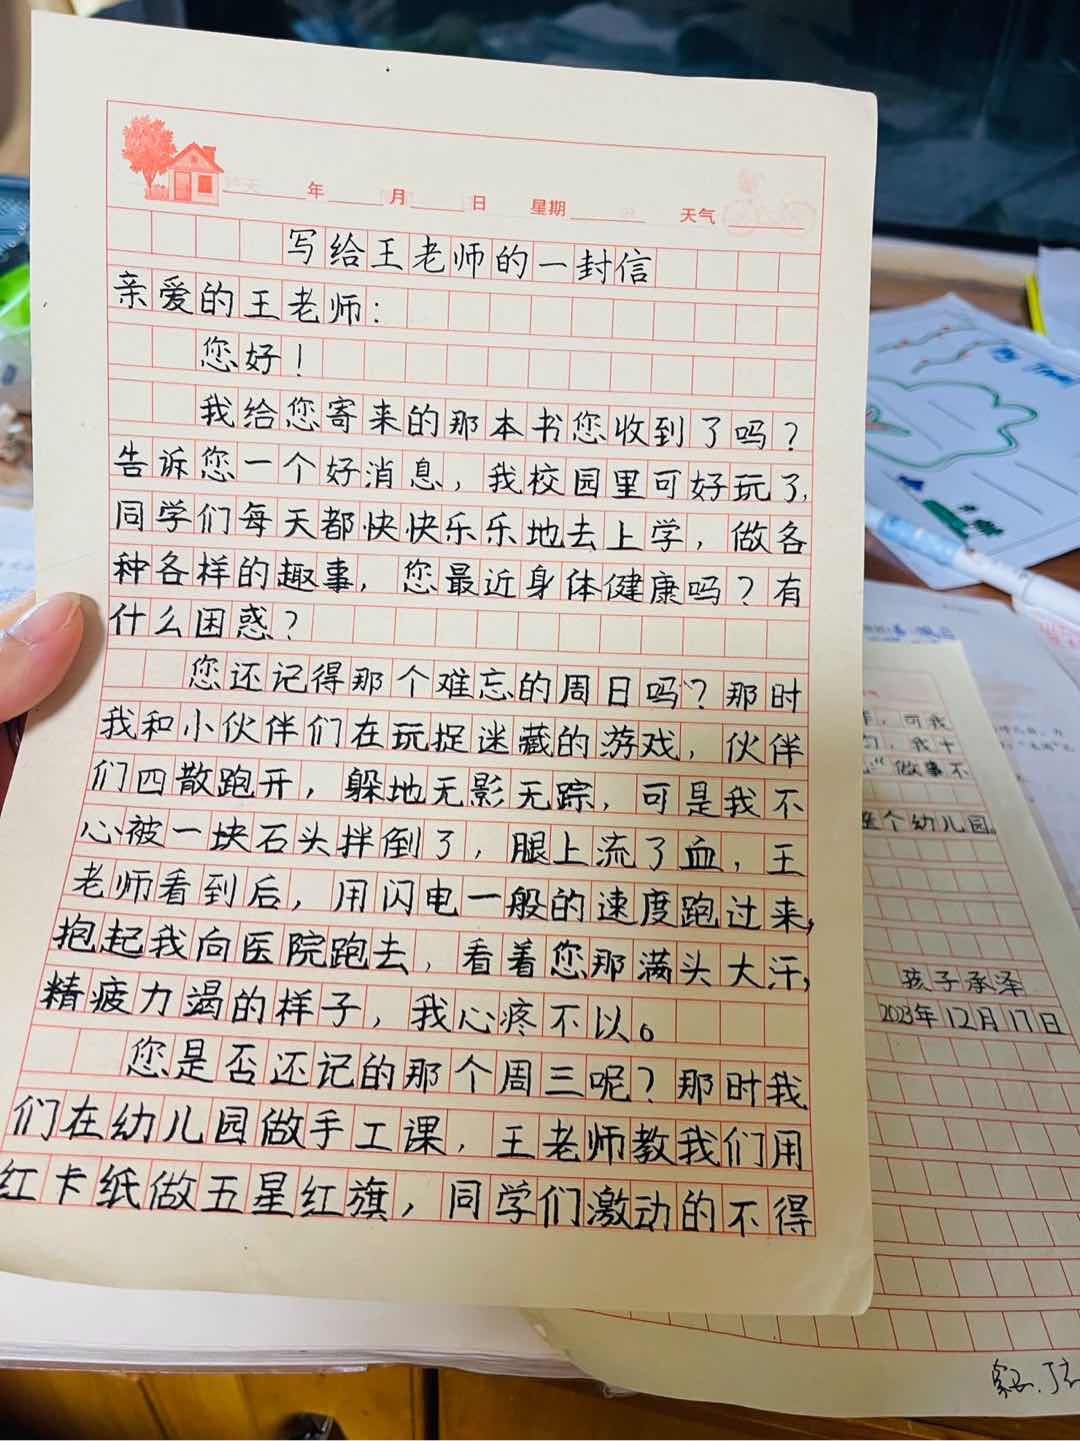 年 月 日 星期 天气
写给王老师的一封信
亲爱的王老师：
您好！
我给您寄来的那本书您收到了吗？
告诉您一个好消息，我校园里可好玩了，
同学们每天都快快乐乐地去上学，做各
种各样的趣事，您最近身体健康吗？有
什么困惑？
您还记得那个难忘的周日吗？那时
我和小伙伴们在玩捉迷藏的游戏，伙伴
们四散跑开，躲地无影无踪，可是我不
心被一块石头拌倒了，腿上流了血，王
老师看到后，用闪电一般的速度跑过来，
抱起我向医院跑去，看着您那满头大汗，
精疲力竭的样子，我心疼不以。
您是否还记的那个周三呢？那时我
们在幼儿园做手工课，王老师教我们用
红卡纸做五星红旗，同学们激动的不得
，可我
，我十
"做事不
个幼儿园。
孩子承泽
2023年12月17日